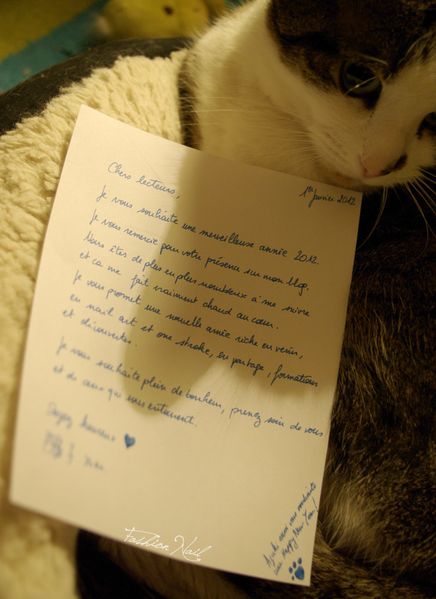 1er janvier 2012
Chers lecteurs,
Je vous souhaite une merveilleuse année 2012.
Je vous remercie pour votre présence sur mon blog.
Vous êtes de plus en plus nombreux à me suivre
et ca me fait vraiment chaud au cœur.
Je vous promet une nouvelle année riche en vernis,
en nail art et one stroke, en partage, formations
et découvertes.
Je vous souhaite plein de bonheur, prenez soin de vous
et de ceux qui vous entourent.
Soyez heureux
vous souhaite
Happy New Year!
Fashion Nail